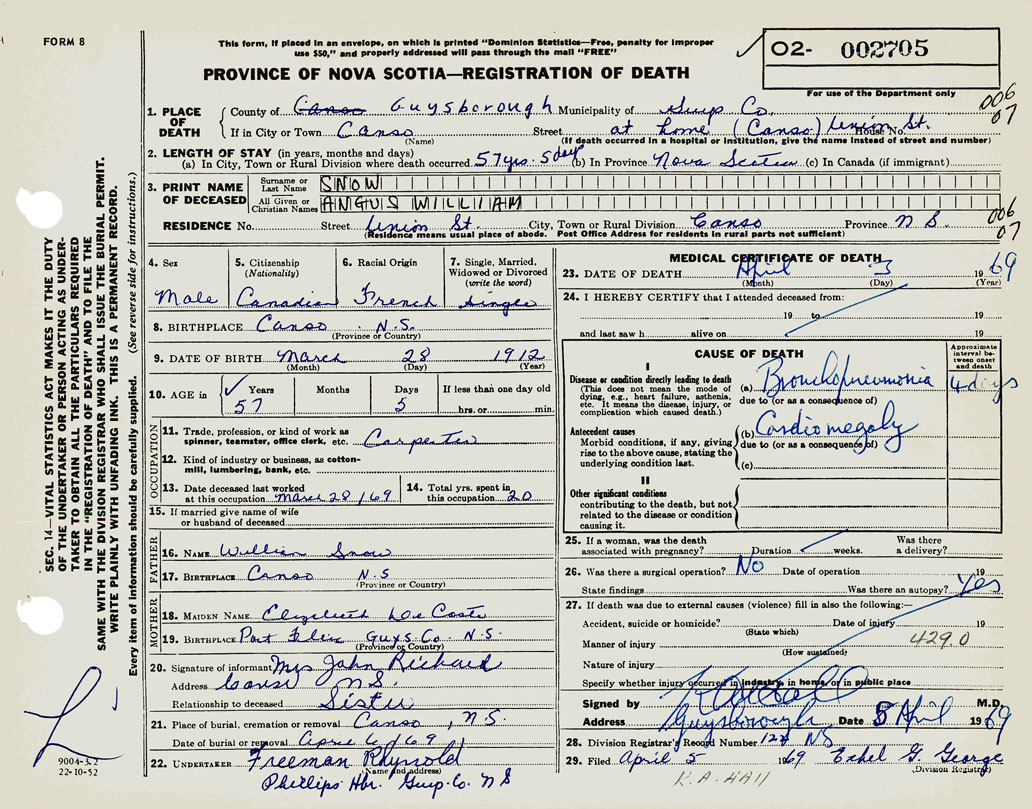 FORM 8
This form, if placed in an envelope, on which is printed "Dominion Statistics—Free, penalty for improper
use $50," and properly addressed will pass through the mail "FREE"
O2- 002705
For use of the Department only
PROVINCE OF NOVA SCOTIA—REGISTRATION OF DEATH
006
07
1. PLACE OF DEATH
County of Canso Guysborough Municipality of Guys Co.
If in City or Town Canso Street at home (Canso) Union St. House No.
(Name) (If death occurred in a hospital or institution, give the name instead of street and number)
2. LENGTH OF STAY (in years, months and days)
(a) In City, Town or Rural Division where death occurred 57 yrs. 5 days (b) In Province Nova Scotia (c) In Canada (if immigrant)
3. PRINT NAME OF DECEASED
Surname or Last Name SNOW
All Given or Christian Names ANGUS WILLIAM
RESIDENCE No. Street Union St. City, Town or Rural Division Canso Province N S.
006
07
(Residence means usual place of abode. Post Office Address for residents in rural parts not sufficient)
4. Sex
Male
5. Citizenship
(Nationality)
Canadian
6. Racial Origin
French
7. Single, Married,
Widowed or Divorced
(write the word)
Single
8. BIRTHPLACE Canso N.S.
(Province or Country)
9. DATE OF BIRTH March 28 1912
(Month) (Day) (Year)
10. AGE in
Years Months Days If less than one day old
57 5 hrs. or min.
OCCUPATION
11. Trade, profession, or kind of work as
spinner, teamster, office clerk, etc. Carpenter
12. Kind of industry or business, as cotton-
mill, lumbering, bank, etc.
13. Date deceased last worked
at this occupation March 28/69
14. Total yrs. spent in
this occupation 20
15. If married give name of wife
or husband of deceased
FATHER
16. NAME William Snow
17. BIRTHPLACE Canso N.S
(Province or Country)
MOTHER
18. MAIDEN NAME Elizabeth De Coste
19. BIRTHPLACE Port Felix Guys. Co. N.S.
(Province or Country)
20. Signature of informant Mrs John Richard
Address Canso N.S.
Relationship to deceased Sister
21. Place of burial, cremation or removal Canso, N.S.
Date of burial or removal April 6/69
22. UNDERTAKER Freeman Rhynold
(Name and address)
Phillips Hbr. Guys. Co. N S
MEDICAL CERTIFICATE OF DEATH
23. DATE OF DEATH April 3 1969
(Month) (Day) (Year)
24. I HEREBY CERTIFY that I attended deceased from:
19 to 19
and last saw h alive on 19
CAUSE OF DEATH
Approximate
interval be-
tween onset
and death
I
Disease or condition directly leading to death
(This does not mean the mode of
dying, e.g., heart failure, asthenia,
etc. It means the disease, injury, or
complication which caused death.)
(a) Bronchopneumonia 4 days
due to (or as a consequence of)
Antecedent causes
Morbid conditions, if any, giving
rise to the above cause, stating the
underlying condition last.
(b) Cardiomegaly
due to (or as a consequence of)
(c)
II
Other significant conditions
contributing to the death, but not
related to the disease or condition
causing it.
25. If a woman, was the death
associated with pregnancy? Duration weeks. Was there
a delivery?
26. Was there a surgical operation? No Date of operation 19
State findings Was there an autopsy? Yes
27. If death was due to external causes (violence) fill in also the following:—
Accident, suicide or homicide? Date of injury 19
(State which)
Manner of injury 429.0
(How sustained)
Nature of injury
Specify whether injury occurred in industry, in home, or in public place
Signed by M.D.
Address Guysborough NS Date 5 April 1969
28. Division Registrar's Record Number
29. Filed April 5 1969 Ethel G. George
(Division Registrar)
K. A. HALL
SEC. 14—VITAL STATISTICS ACT MAKES IT THE DUTY
OF THE UNDERTAKER OR PERSON ACTING AS UNDER-
TAKER TO OBTAIN ALL THE PARTICULARS REQUIRED
IN THE "REGISTRATION OF DEATH" AND TO FILE THE
SAME WITH THE DIVISION REGISTRAR WHO SHALL ISSUE THE BURIAL PERMIT.
WRITE PLAINLY WITH UNFADING INK. THIS IS A PERMANENT RECORD.
Every item of information should be carefully supplied. (See reverse side for instructions.)
9004-3.2
22-10-52